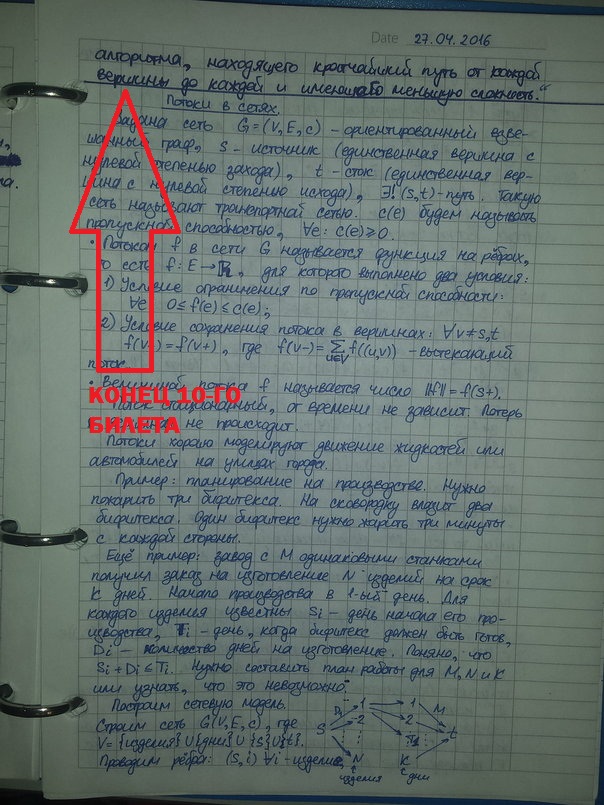 Date 27.04.2016
алгоритма, находящего кратчайший путь от каждой
вершины до каждой и имеющего меньшую сложность."
Потоки в сетях.
Задана сеть G=(V,E,c) – ориентированный взве-
шанный граф, s – источник (единственная вершина с
нулевой степенью захода), t – сток (единственная вер-
шина с нулевой степенью исхода), ∃! (s,t)-путь. Такую
сеть называют транспортной сетью. c(e) будем называть
пропускной способностью, ∀e: c(e)≥0.
• Потоком f в сети G называется функция на рёбрах,
то есть f: E→R, для которого выполнено два условия:
1) Условие ограничения по пропускной способности:
∀e 0≤f(e)≤c(e);
2) Условие сохранения потока в вершинах: ∀v≠s,t
f(v-)=f(v+), где f(v-)=∑ f((u,v)) – вытекающий
u∈V
поток
• Величиной потока f называется число ‖f‖=f(s+).
КОНЕЦ 10-ГО
БИЛЕТА
Поток стационарный, от времени не зависит. Потерь
не происходит.
Потоки хорошо моделируют движение жидкостей или
автомобилей на улицах города.
Пример: планирование на производстве. Нужно
пожарить три бифштекса. На сковородку влазит два
бифштекса. Один бифштекс нужно жарить три минуты
с каждой стороны.
Ещё пример: завод с M одинаковыми станками
получил заказ на изготовление N изделий на срок
K дней. Начало производства в 1-ый день. Для
каждого изделья известны Si – день начала его про-
изводства, Ti – день, когда бифштекс должен быть готов,
Di – количество дней на изготовление. Понятно, что
Si+Di≤Ti. Нужно составить план работы для M, N и K
или узнать, что это невозможно.
Построим сетевую модель.
Строим сеть G(V,E,c), где
V={изделия}∪{дни}∪{s}∪{t}.
Проводим рёбра: (s,i) ∀i-изделие,
Di 1 1 M
S 2 2 t
N K
изделия дни